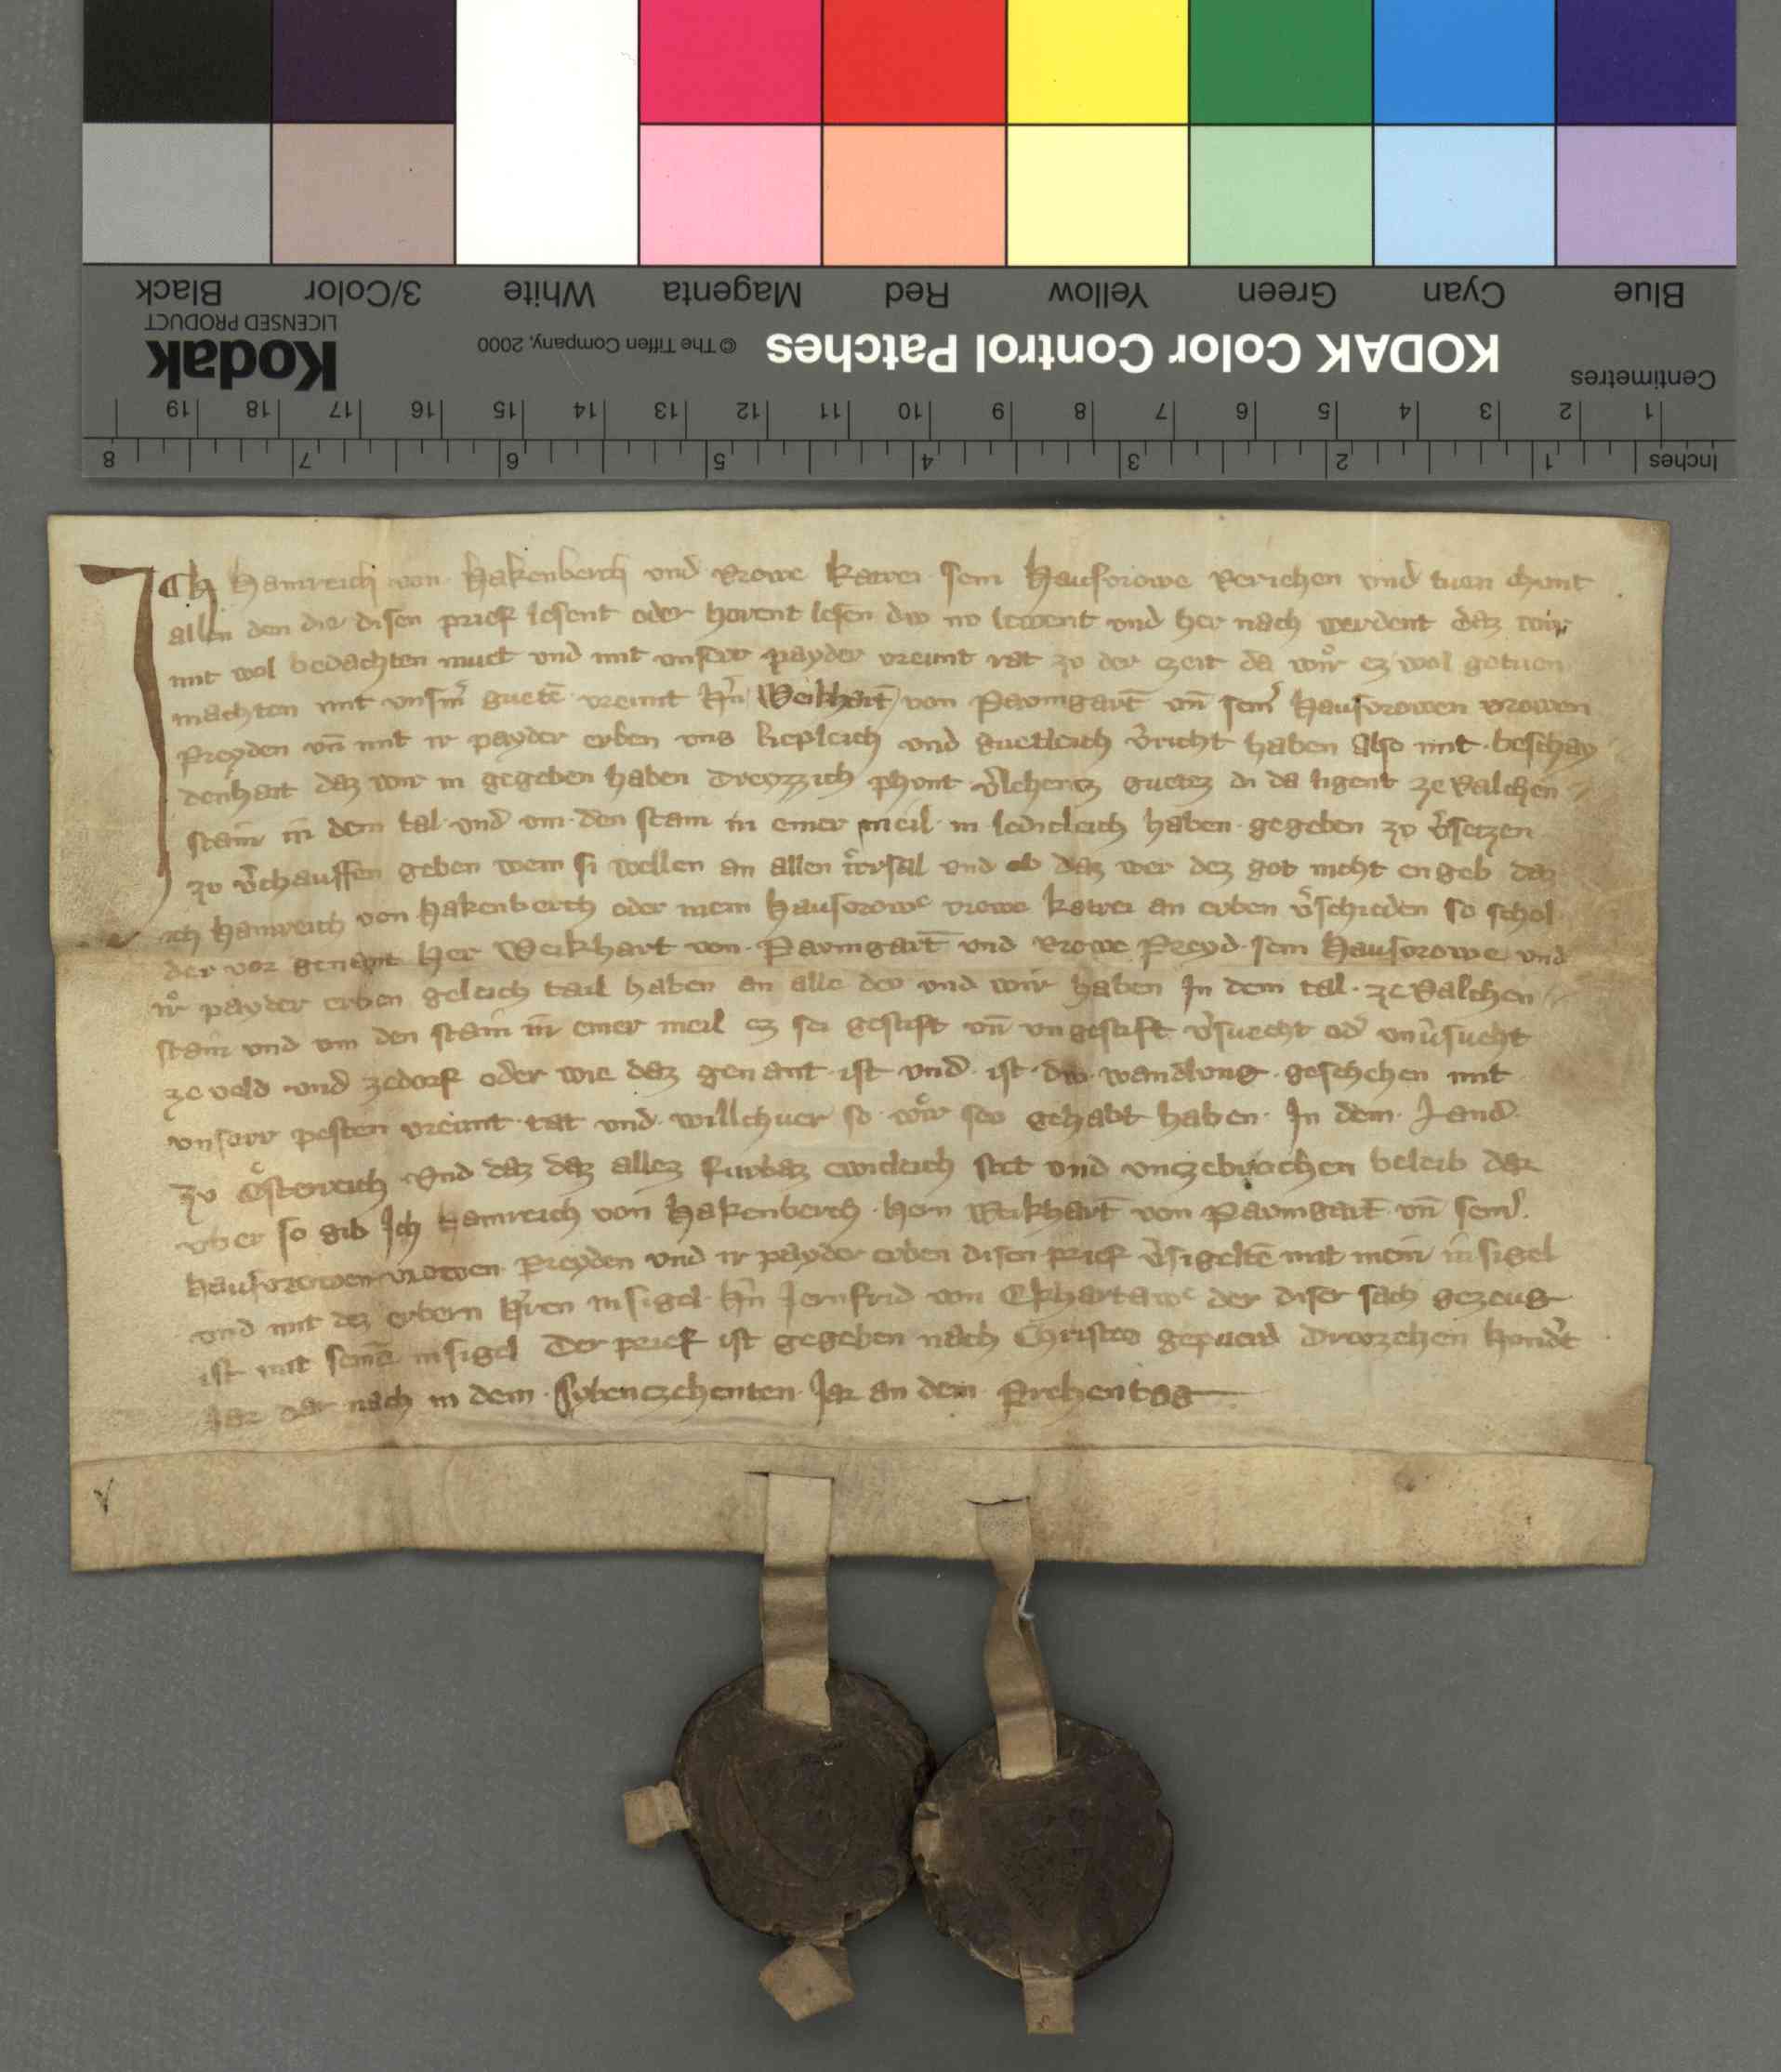 Black 3/Color White Magenta Red Yellow Green Cyan Blue
LICENSED PRODUCT
Kodak © The Tiffen Company, 2000 KODAK Color Control Patches Centimetres
19 18 17 16 15 14 13 12 11 10 9 8 7 6 5 4 3 2 1
8 7 6 5 4 3 2 1 Inches
Ich Hainreich von Hakenberch vnd vrowe Katrei sein Hausvrowe veriehen vnd tuen chunt
allen den die disen prief lesent oder horent lesen div nv lewent vnd her nach werdent daz wir
mit wol bedachten muet vnd mit vnserr payder vreunt rat zv der czeit da wir ez wol getuen
machten mit vnserm guetē vreunt hˀn Weikhart von Pavmgartˉ vn̄ seinˀ Hausvrowen vrowen
Preyden vn̄ mit ir payder erben vns liepleich vnd guetleich vˀricht haben also mit beschay
denhait daz wir in gegeben haben dreyzzich phunt gueltez di da ligent ze valchen
stain in dem tal vnd vm den stain in einer meil in ledicleich haben gegeben zv vˀsetzen
zv vˀchauffen geben wem si wellen an allen irrsal vnd ob daz wer dez got nicht engeb daz
ich Hainreich von Hakenberch oder mein Hausvrowe vrowe Katrei an erben vˀschieden so schol
der vor genant Her Weikhart von Pavmgartˉ vnd vrowe Preyd sein Hausvrowe vnd
ir payder erben geleich tail haben an alle dev vnd wir haben In dem tal ze valchen
stain vnd vm den stain in einer meil ez sei gestift vn̄ vngestift vˀsuecht odˀ vnvˀsucht
ze veld vnd zedorf oder wie daz genant ist vnd ist div wandlvng geschehen mit
vnserr pesten vreunt rat vnd willchuer so wir sev gehabt haben In dem Land
zv Osterreich Vnd daz daz allez furbaz ewicleich stet vnd vnczebrochen beleib dar
vber so gib Ich Hainreich von Hakenberch hern Weikhartˉ von Pavmgartˉ vn̄ seinˀ
hausvrowen vrowen Preyden vnd ir payder erben disen prief vˀsigeltē mit mein insigel
vnd mit dez erbern hˀren insigel hˀn Jernfrid von Ekhartawe der diser sach gezeug
ist mit seinē insigel Der prief ist gegeben nach Christes gepuerd Drevzehen hundˀt
Jar dar nach in dem sybenczehenten Jar an dem Prehentag